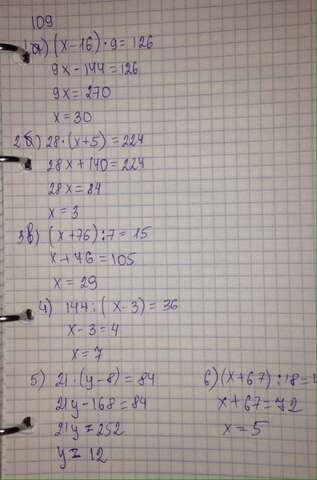 109
1а) (x-16)·9=126
9x-144=126
9x=270
x=30
2б) 28·(x+5)=224
28x+140=224
28x=84
x=3
3в) (x+76):7=15
x+76=105
x=29
4) 144:(x-3)=36
x-3=4
x=7
5) 21·(y-8)=84
21y-168=84
21y=252
y=12
6) (x+67):18=
x+67=72
x=5